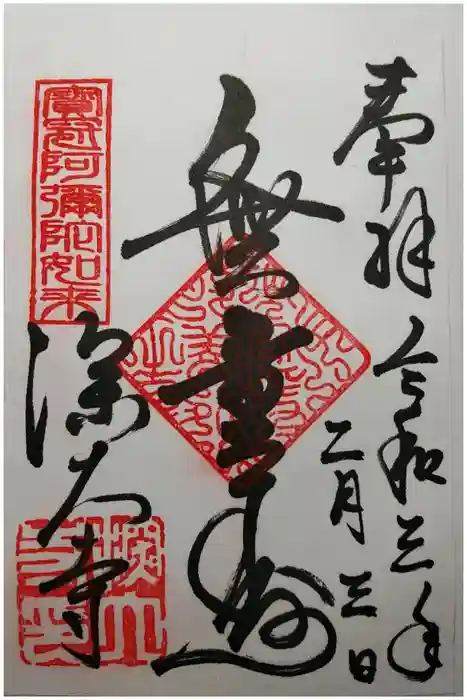 奉拝
令和三年
二月三日
無量寿
寶冠阿彌陀如来
深大寺